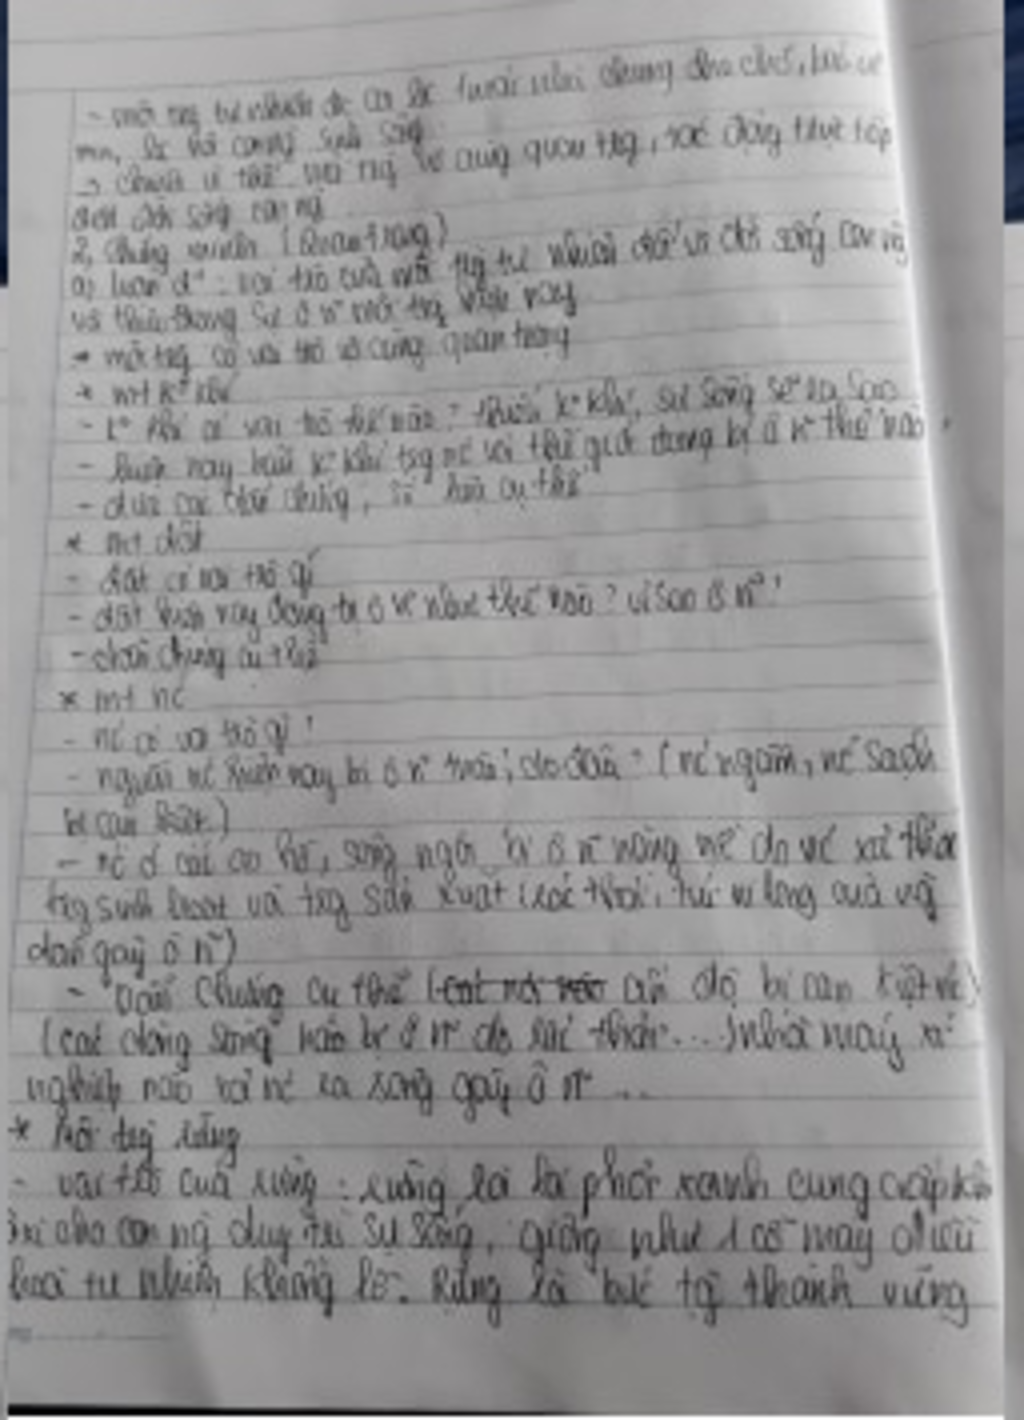 - môi trg tự nhiên là
mn, là con ng sinh sống
→ chính vì thế môi trg vô cùng quan trg, tác động trực tiếp
đến đời sống con ng
2, Chứng minh (Quan trọng)
a, luận đ : vai trò của môi trg tự nhiên đối với đời sống con ng
và thực trạng sự ô n môi trg hiện nay
* môi trg có vai trò vô cùng quan trọng
* mt k khí
- k khí có vai trò thế nào? thiếu k khí, sự sống sẽ ra sao
- hiện nay bầu k khí trg nc và thế giới đang bị ô n thế nào?
- đưa các dẫn chứng, cụ thể
* mt đất
- đất có vai trò gì
- đất hiện nay đang bị ô n như thế nào? vì sao ô n?
- dẫn chứng cụ thể
* mt nc
- nc có vai trò gì?
- nguồn nc hiện nay bị ô n do đâu? (nc ngầm, nc sạch
bị cạn kiệt)
- nc ở các ao hồ, sông ngòi bị ô n nặng nề do vc xả thải
trg sinh hoạt và trg sản xuất (rác thải, túi ni lông, của ng
dân gây ô n)
- Dẫn chứng cụ thể (ấn độ bị cạn kiệt nc)
(các dòng sông nào bị ô n do rác thải...) nhà máy xí
nghiệp nào xả nc ra sông gây ô n ...
* Môi trg rừng
- vai trò của rừng: rừng là lá phổi xanh cung cấp
oxi cho con ng duy trì sự sống, giống như 1 cỗ máy điều
hoà tự nhiên khổng lồ. Rừng là bức tg thành vững